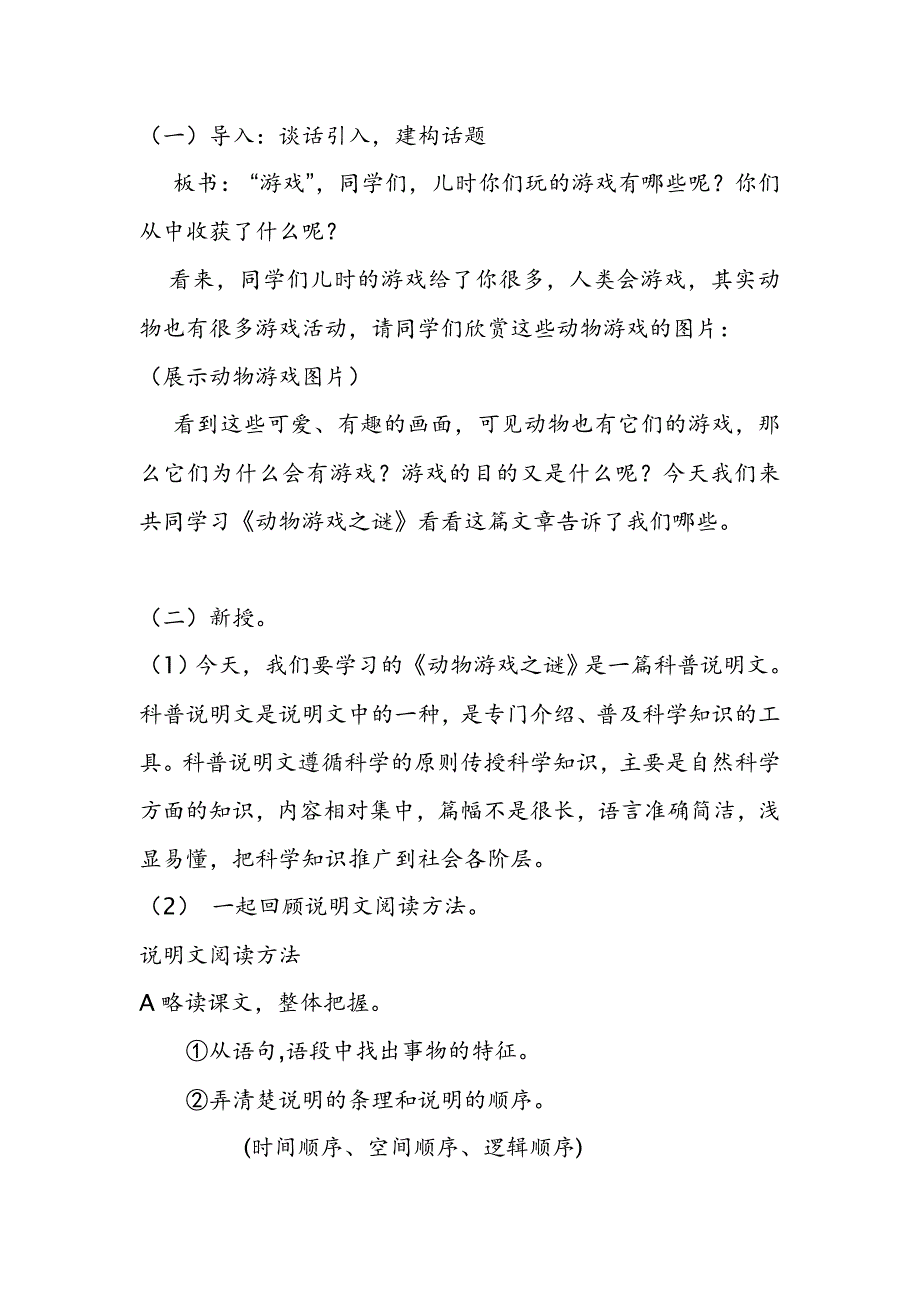 （一）导入：谈话引入，建构话题
板书：“游戏”，同学们，儿时你们玩的游戏有哪些呢？你们
从中收获了什么呢？
看来，同学们儿时的游戏给了你很多，人类会游戏，其实动
物也有很多游戏活动，请同学们欣赏这些动物游戏的图片：
（展示动物游戏图片）
看到这些可爱、有趣的画面，可见动物也有它们的游戏，那
么它们为什么会有游戏？游戏的目的又是什么呢？今天我们来
共同学习《动物游戏之谜》看看这篇文章告诉了我们哪些。
（二）新授。
（1）今天，我们要学习的《动物游戏之谜》是一篇科普说明文。
科普说明文是说明文中的一种，是专门介绍、普及科学知识的工
具。科普说明文遵循科学的原则传授科学知识，主要是自然科学
方面的知识，内容相对集中，篇幅不是很长，语言准确简洁，浅
显易懂，把科学知识推广到社会各阶层。
（2） 一起回顾说明文阅读方法。
说明文阅读方法
A 略读课文，整体把握。
①从语句,语段中找出事物的特征。
②弄清楚说明的条理和说明的顺序。
(时间顺序、空间顺序、逻辑顺序)